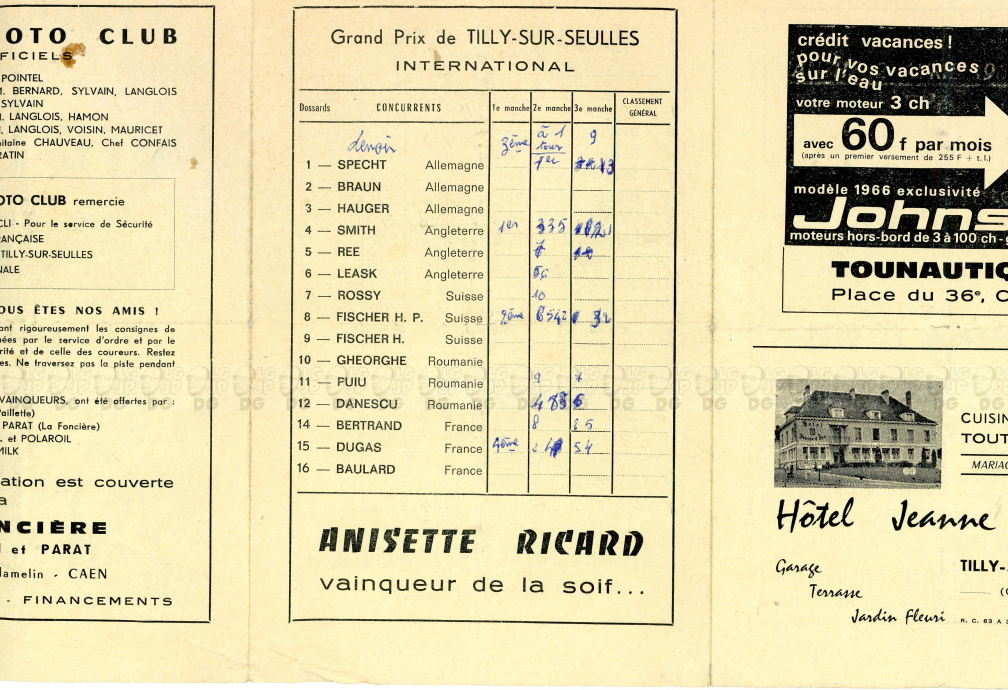 OTO CLUB
FICIELS
POINTEL
M. BERNARD, SYLVAIN, LANGLOIS
SYLVAIN
I. LANGLOIS, HAMON
I, LANGLOIS, VOISIN, MAURICET
itaine CHAUVEAU, Chef CONFAIS
RATIN
OTO CLUB remercie
CLI - Pour le service de Sécurité
RANÇAISE
TILLY-SUR-SEULLES
NALE
OUS ÊTES NOS AMIS !
ant rigoureusement les consignes de
nées par le service d'ordre et par le
rité et de celle des coureurs. Restez
es. Ne traversez pas la piste pendant
VAINQUEURS, ont été offertes par :
Paillette)
PARAT (La Foncière)
L et POLAROIL
MILK
ation est couverte
a
NCIÈRE
et PARAT
Hamelin - CAEN
- FINANCEMENTS
Grand Prix de TILLY-SUR-SEULLES
INTERNATIONAL
Dossards CONCURRENTS 1e manche 2e manche 3e manche CLASSEMENT GÉNÉRAL
Lenoir 3ème à 1 tour 9
1 — SPECHT Allemagne 1er 13
2 — BRAUN Allemagne
3 — HAUGER Allemagne
4 — SMITH Angleterre 1er 335
5 — REE Angleterre
6 — LEASK Angleterre
7 — ROSSY Suisse 10
8 — FISCHER H. P. Suisse 2ème 6542 32
9 — FISCHER H. Suisse
10 — GHEORGHE Roumanie
11 — PUIU Roumanie 9 7
12 — DANESCU Roumanie 6
14 — BERTRAND France 8
15 — DUGAS France 4ème 54
16 — BAULARD France
ANISETTE RICARD
vainqueur de la soif...
crédit vacances !
pour vos vacances
sur l'eau
votre moteur 3 ch
avec 60 f par mois
(après un premier versement de 255 F + t.l.)
modèle 1966 exclusivité
Johns
moteurs hors-bord de 3 à 100 ch
TOUNAUTIQ
Place du 36e, C
CUISIN
TOUT
MARIAG
Hôtel Jeanne
Garage
TILLY-
Terrasse
Jardin Fleuri
R. C. 63 A